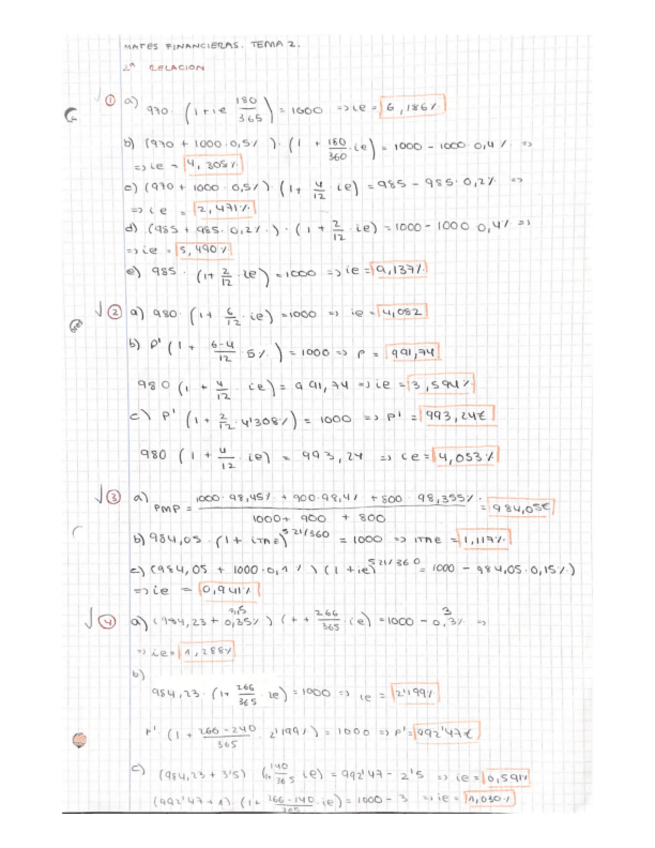 MATES FINANCIERAS. TEMA 2.
2ª RELACIÓN
① a) 970 · (1 + ie 180/365) = 1000 => ie = 6,186%
b) (970 + 1000·0,5%) · (1 + 180/360 · ie) = 1000 - 1000·0,4% =>
=> ie = 4,305%
c) (970 + 1000·0,5%) (1 + 4/12 ie) = 985 - 985·0,2% =>
=> ie = 2,471%
d) (985 + 985·0,2%) · (1 + 2/12 · ie) = 1000 - 1000·0,4% =>
=> ie = 5,490%
e) 985 · (1 + 2/12 · ie) = 1000 => ie = 9,137%
② a) 980 · (1 + 6/12 · ie) = 1000 => ie = 4,082
b) P' (1 + 6-4/12 · 5%) = 1000 => P = 991,74
980 (1 + 4/12 · ie) = 991,74 => ie = 3,594%
c) P' (1 + 2/12 · 4'308%) = 1000 => P' = 993,24€
980 (1 + 4/12 · ie) = 993,24 => ie = 4,053%
③ a) PMP = 1000·98,45% + 900·98,4% + 800·98,355% / 1000 + 900 + 800 = 984,05€
b) 984,05 · (1 + iTAE)^521/360 = 1000 => iTAE = 1,117%
c) (984,05 + 1000·0,1%) (1 + ie)^521/360 = 1000 - 984,05·0,15%)
=> ie = 0,941%
④ a) (984,23 + 0,35%) (1 + 266/365 · ie) = 1000 - 0,3% =>
=> ie = 1,288%
b)
984,23 · (1 + 266/365 ie) = 1000 => ie = 2'199%
P' (1 + 266-240/365 · 2'199%) = 1000 => P' = 992'47€
c) (984,23 + 3'5) (1 + 140/365 ie) = 992'47 - 2'5 => ie = 0,59%
(992'47 + 1) · (1 + 266-140/365 · ie) = 1000 - 3 => ie = 1,030%